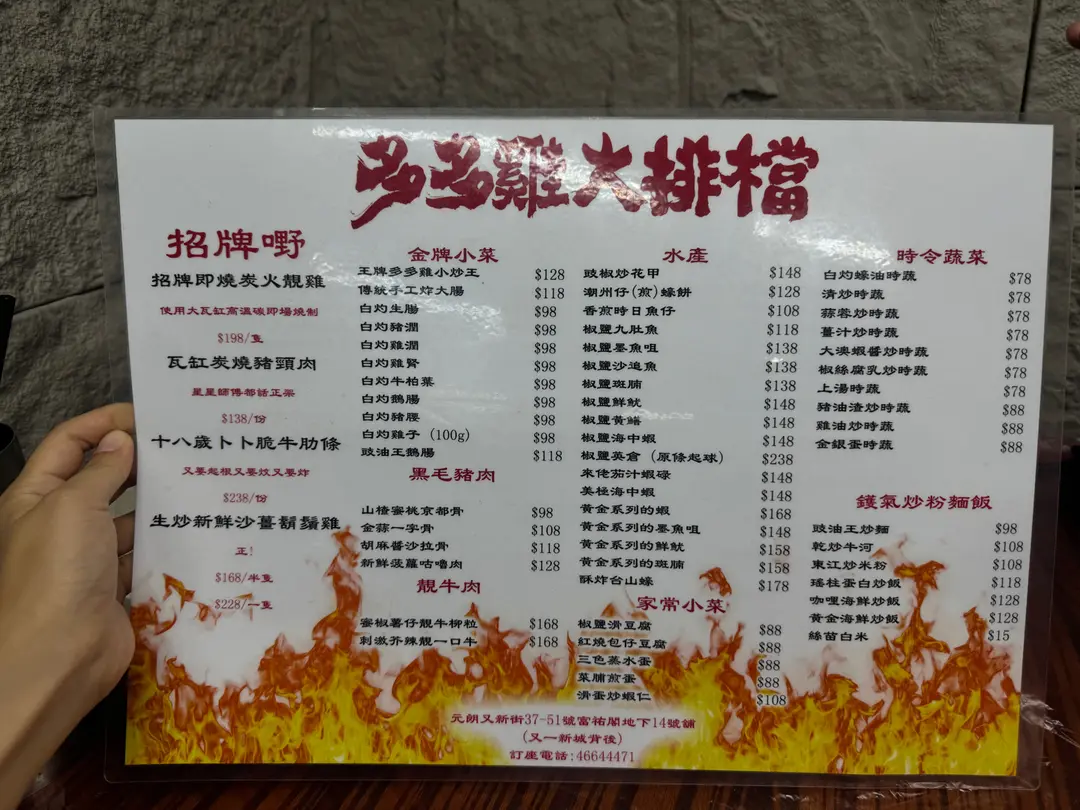 多多雞大排檔
招牌嘢
招牌即燒炭火靚雞
使用大瓦缸高溫碳即場燒制
$198/隻
瓦缸炭燒豬頸肉
星星師傅都話正架
$138/份
十八歲卜卜脆牛肋條
又要起根又要炆又要炸
$238/份
生炒新鮮沙薑鬍鬚雞
正!
$168/半隻
$228/一隻
金牌小菜
王牌多多雞小炒王 $128
傳統手工炸大腸 $118
白灼生腸 $98
白灼豬潤 $98
白灼雞潤 $98
白灼雞腎 $98
白灼牛柏葉 $98
白灼鵝腸 $98
白灼豬腰 $98
白灼雞子 (100g) $98
豉油王鵝腸 $118
黑毛豬肉
山楂蜜桃京都骨 $98
金蒜一字骨 $108
胡麻醬沙拉骨 $118
新鮮菠蘿咕嚕肉 $128
靚牛肉
蜜椒薯仔靚牛柳粒 $168
刺激芥辣靚一口牛 $168
水產
豉椒炒花甲 $148
潮州仔(煎)蠔餅 $128
香煎時日魚仔 $108
椒鹽九肚魚 $118
椒鹽墨魚咀 $138
椒鹽沙追魚 $138
椒鹽斑腩 $138
椒鹽鮮魷 $148
椒鹽黃鱔 $148
椒鹽海中蝦 $148
椒鹽英倉 (原條起球) $238
來佬茄汁蝦碌 $148
美極海中蝦 $148
黃金系列的蝦 $168
黃金系列的墨魚咀 $148
黃金系列的鮮魷 $158
黃金系列的斑腩 $158
酥炸台山蠔 $178
家常小菜
椒鹽滑豆腐 $88
紅燒包仔豆腐 $88
三色蒸水蛋 $88
菜脯煎蛋 $88
滑蛋炒蝦仁 $108
時令蔬菜
白灼蠔油時蔬 $78
清炒時蔬 $78
蒜蓉炒時蔬 $78
薑汁炒時蔬 $78
大澳蝦醬炒時蔬 $78
椒絲腐乳炒時蔬 $78
上湯時蔬 $78
豬油渣炒時蔬 $88
雞油炒時蔬 $88
金銀蛋時蔬 $88
鑊氣炒粉麵飯
豉油王炒麵 $98
乾炒牛河 $108
東江炒米粉 $108
瑤柱蛋白炒飯 $118
咖哩海鮮炒飯 $128
黃金海鮮炒飯 $128
絲苗白米 $15
元朗又新街37-51號富祐閣地下14號舖
(又一新城背後)
訂座電話:46644471